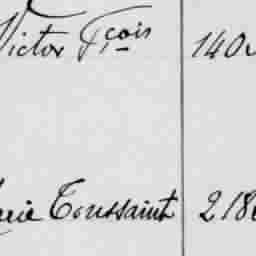 Victor Fçois 140
Marie Toussaint 218